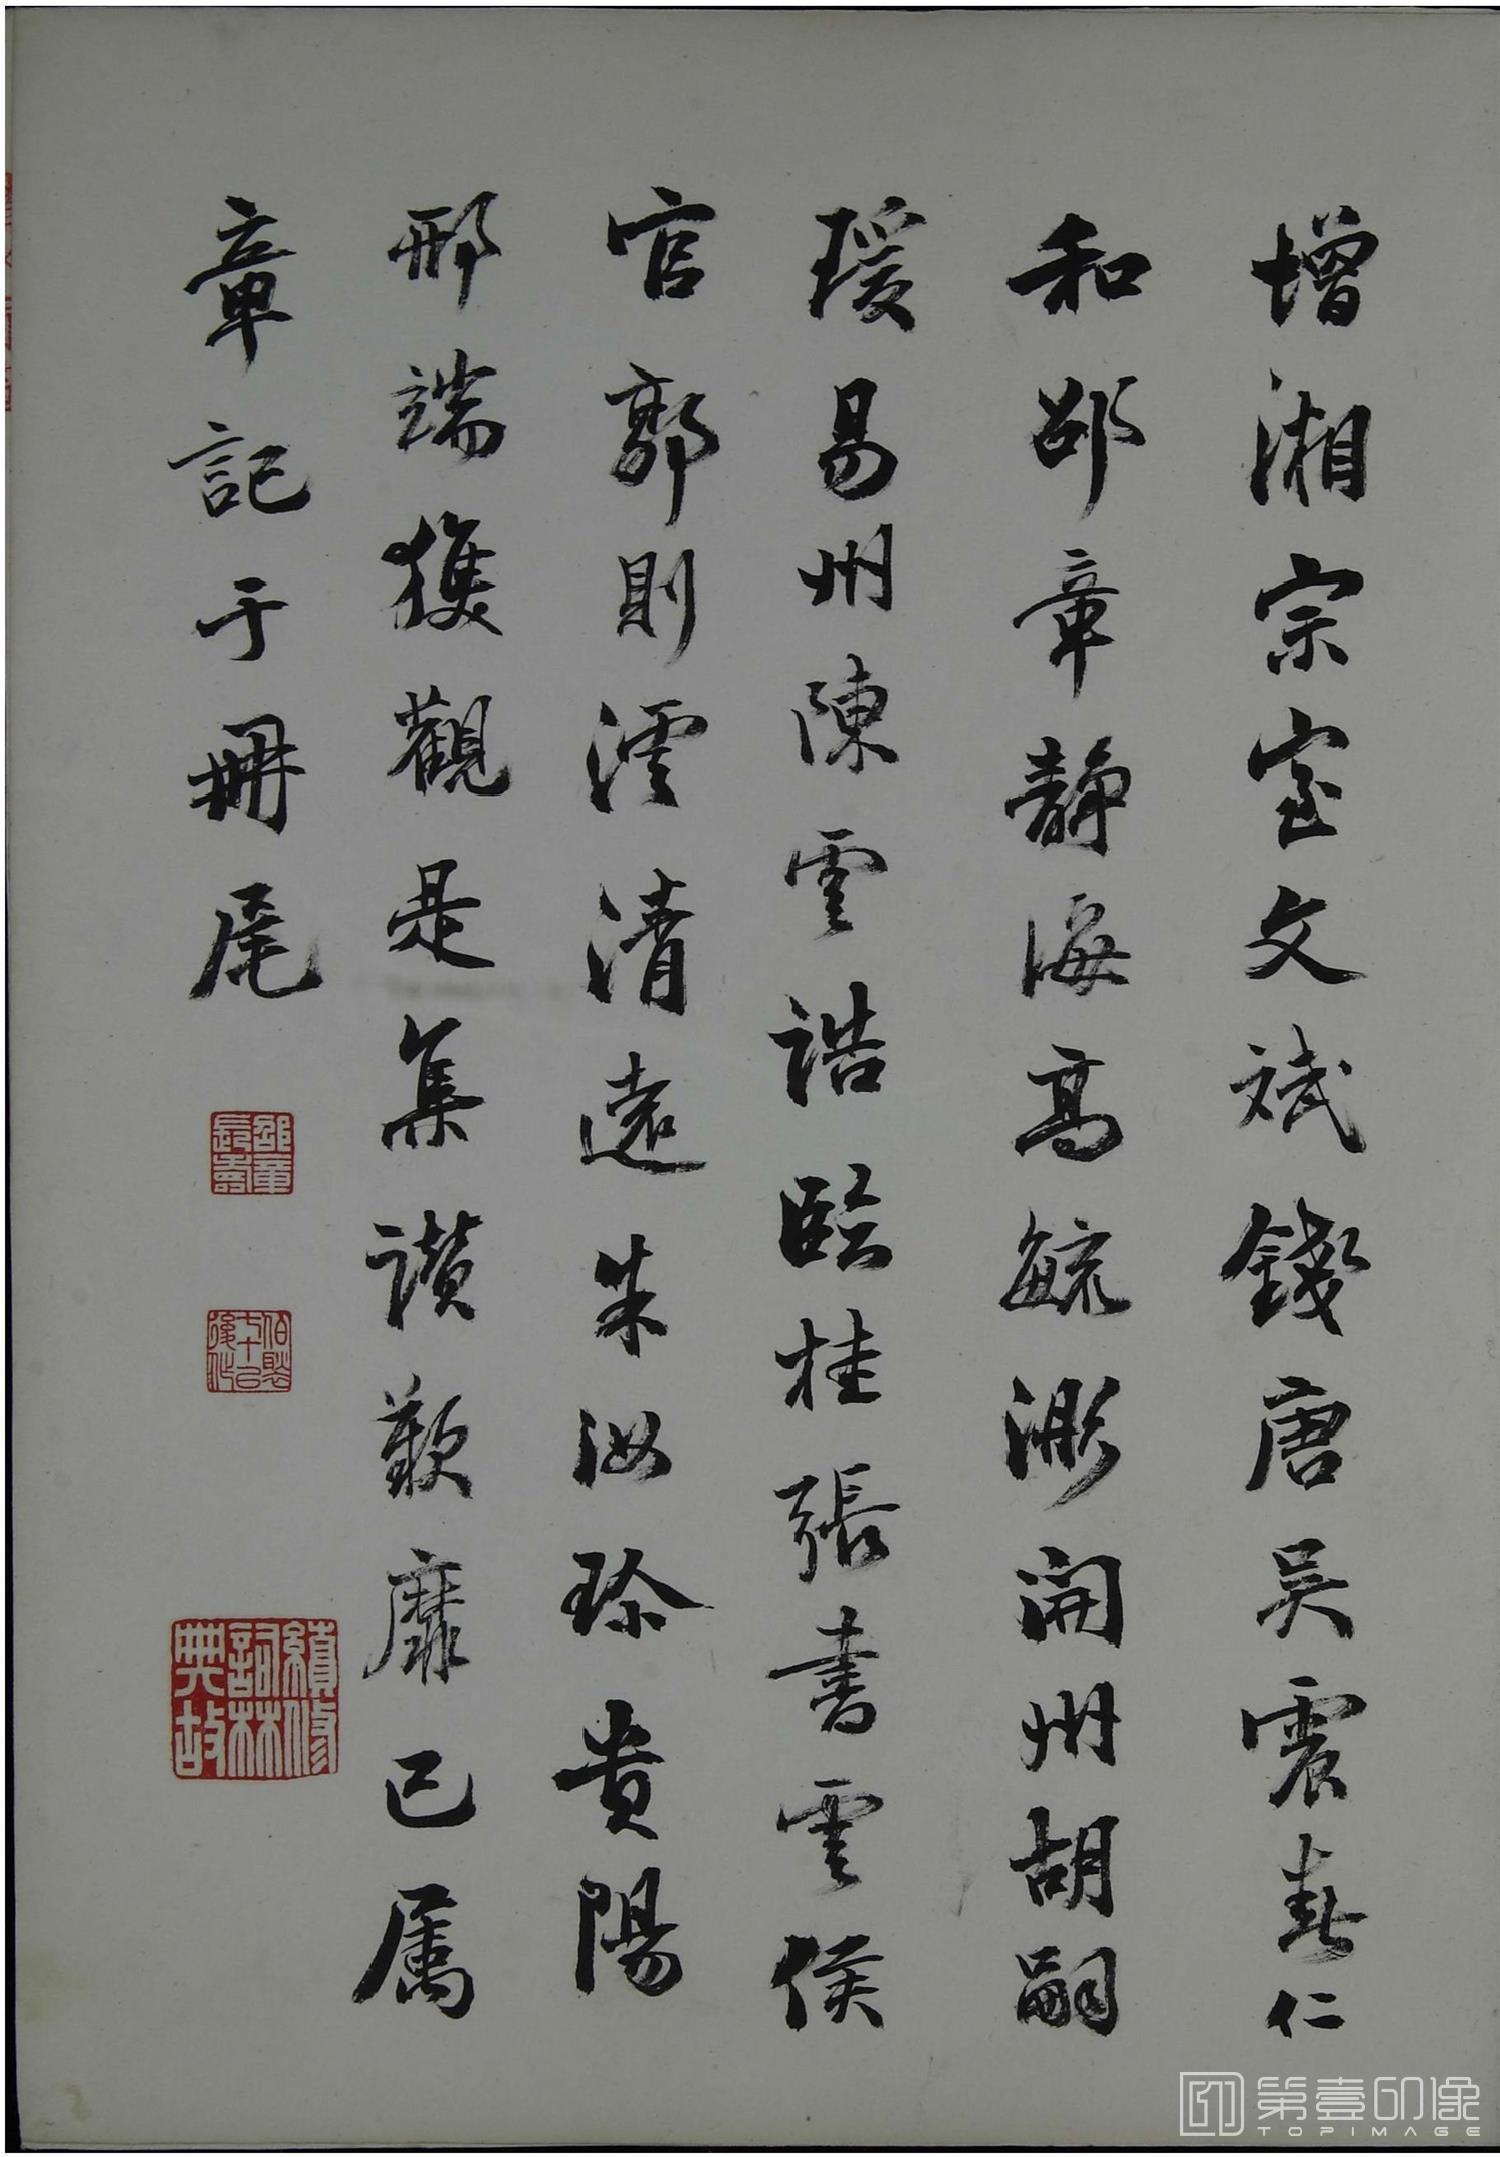 增湘宗室文斌錢唐吴震春仁
和邵章靜海高毓浵開州胡嗣
瑗易州陳雲誥臨桂張書雲侯
官郭則澐清遠朱汝珍貴陽
邢端獲觀是集讃歎靡已属
章記于冊尾
邵章長壽
伯褧七十已後作
續修詞林典故
第壹印像
TOPIMAGE